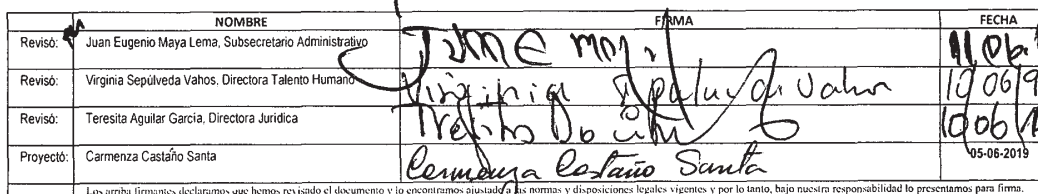 NOMBRE FIRMA FECHA
Revisó: Juan Eugenio Maya Lema, Subsecretario Administrativo
Revisó: Virginia Sepúlveda Vahos, Directora Talento Humano Virginia Sepulveda Vahos 10 06 19
Revisó: Teresita Aguilar García, Directora Jurídica 10 06
Proyectó: Carmenza Castaño Santa Carmenza Castaño Santa 05-06-2019
Los arriba firmantes declaramos que hemos revisado el documento y lo encontramos ajustado a las normas y disposiciones legales vigentes y por lo tanto, bajo nuestra responsabilidad lo presentamos para firma.